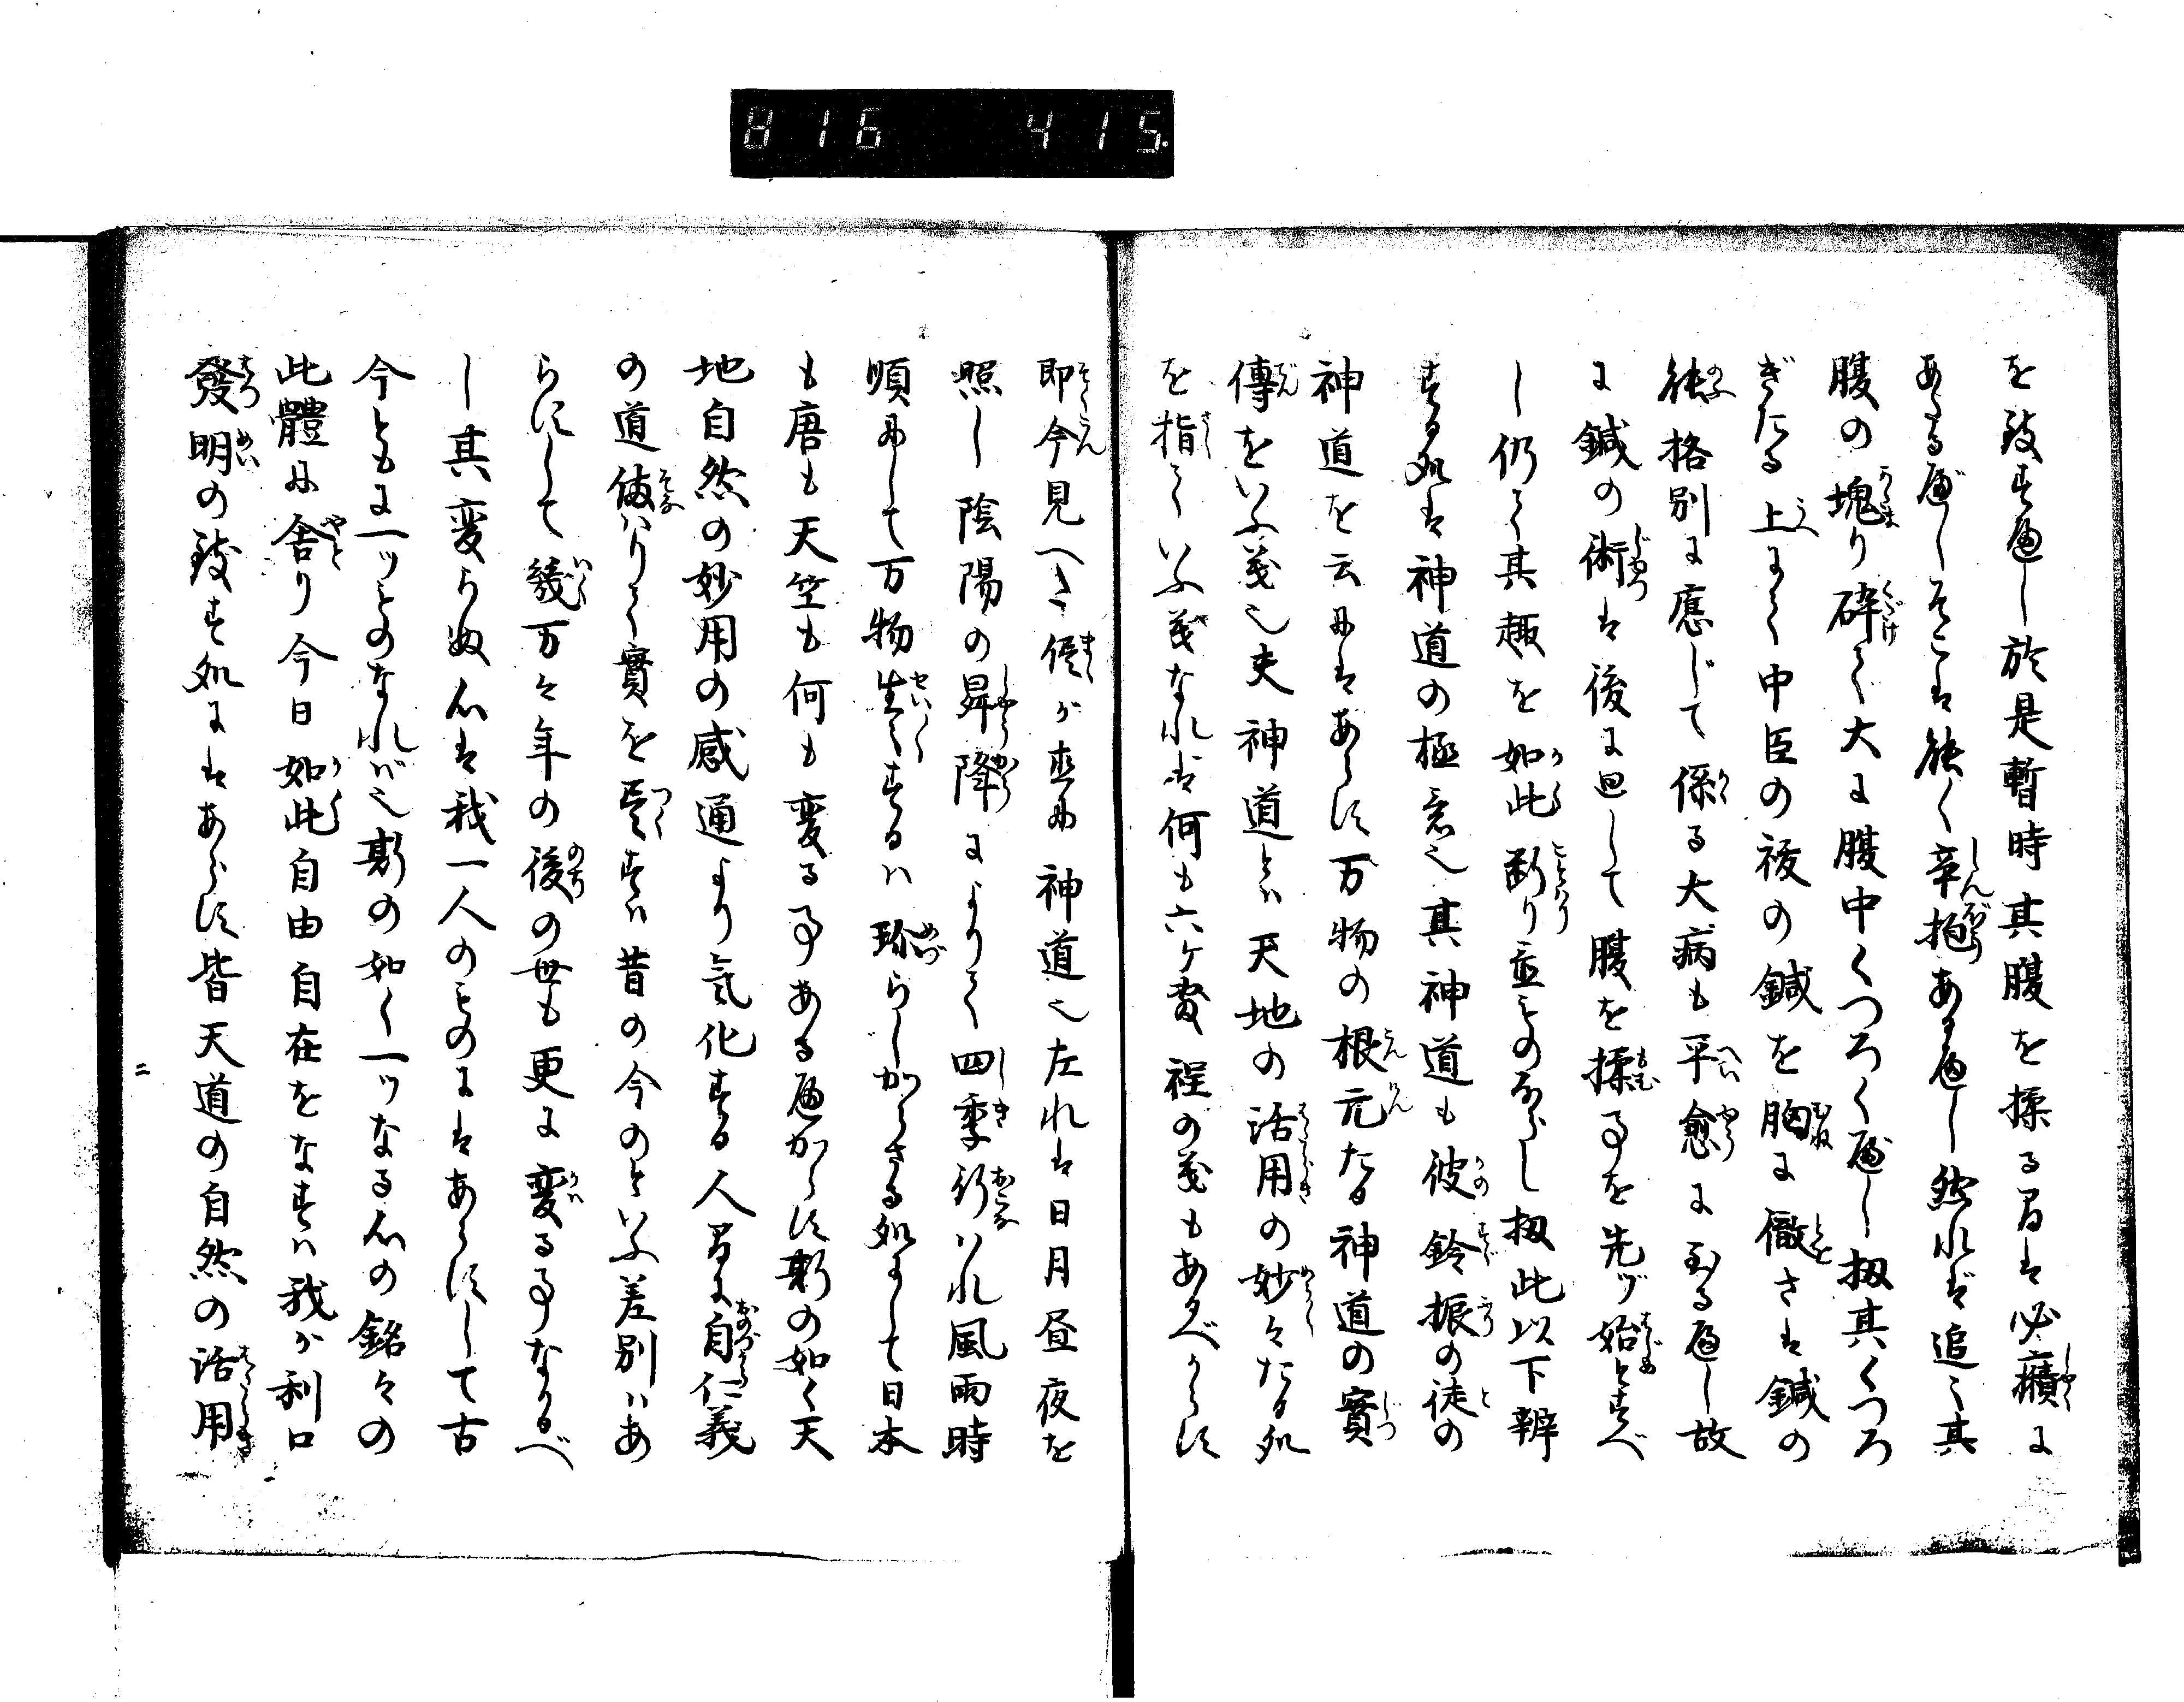 816 415.
を致すべし於是暫時其腹を揉る間は必癪に
あたるべしそこは能く辛抱あるべし然れば追々其
腹の塊り砕けて大に腹中くつろぐべし扨其くつろ
ぎたる上にて中臣の祓の鍼を胸に徹さは鍼の
能格別に應じて係る大病も平愈に至るべし故
に鍼の術は後に回して腹を揉る事を先づ始とすべ
し仍て其趣を如此断り置ものならし扨此以下辨
する処は神道の極意也其神道も彼鈴振の徒の
神道を云にはあらず万物の根元たる神道の實
傳をいふ義也夫神道とハ天地の活用の妙々たる処
を指ていふ義なれば何も六ケ敷程の義もあるべからず
即今見へき侭が直に神道也左れは日月昼夜を
照し陰陽の昇降によりて四季行ハれ風雨時
順にして万物生々するハ珍らしからざる処にして日本
も唐も天竺も何も変る事あるべからず斯の如く天
地自然の妙用の感通より気化する人間に自仁義
の道備ハりて實を尽すハ昔の今のといふ差別ハあ
らずして幾万々年の後の世も更に変る事なかるべ
し其変らぬ心は我一人のものにはあらずして古
今ともに一ッものなれば也斯の如く一ッなる心の銘々の
此體に舎り今日如此自由自在をなすハ我が利口
發明の致す処にはあらず皆天道の自然の活用
二